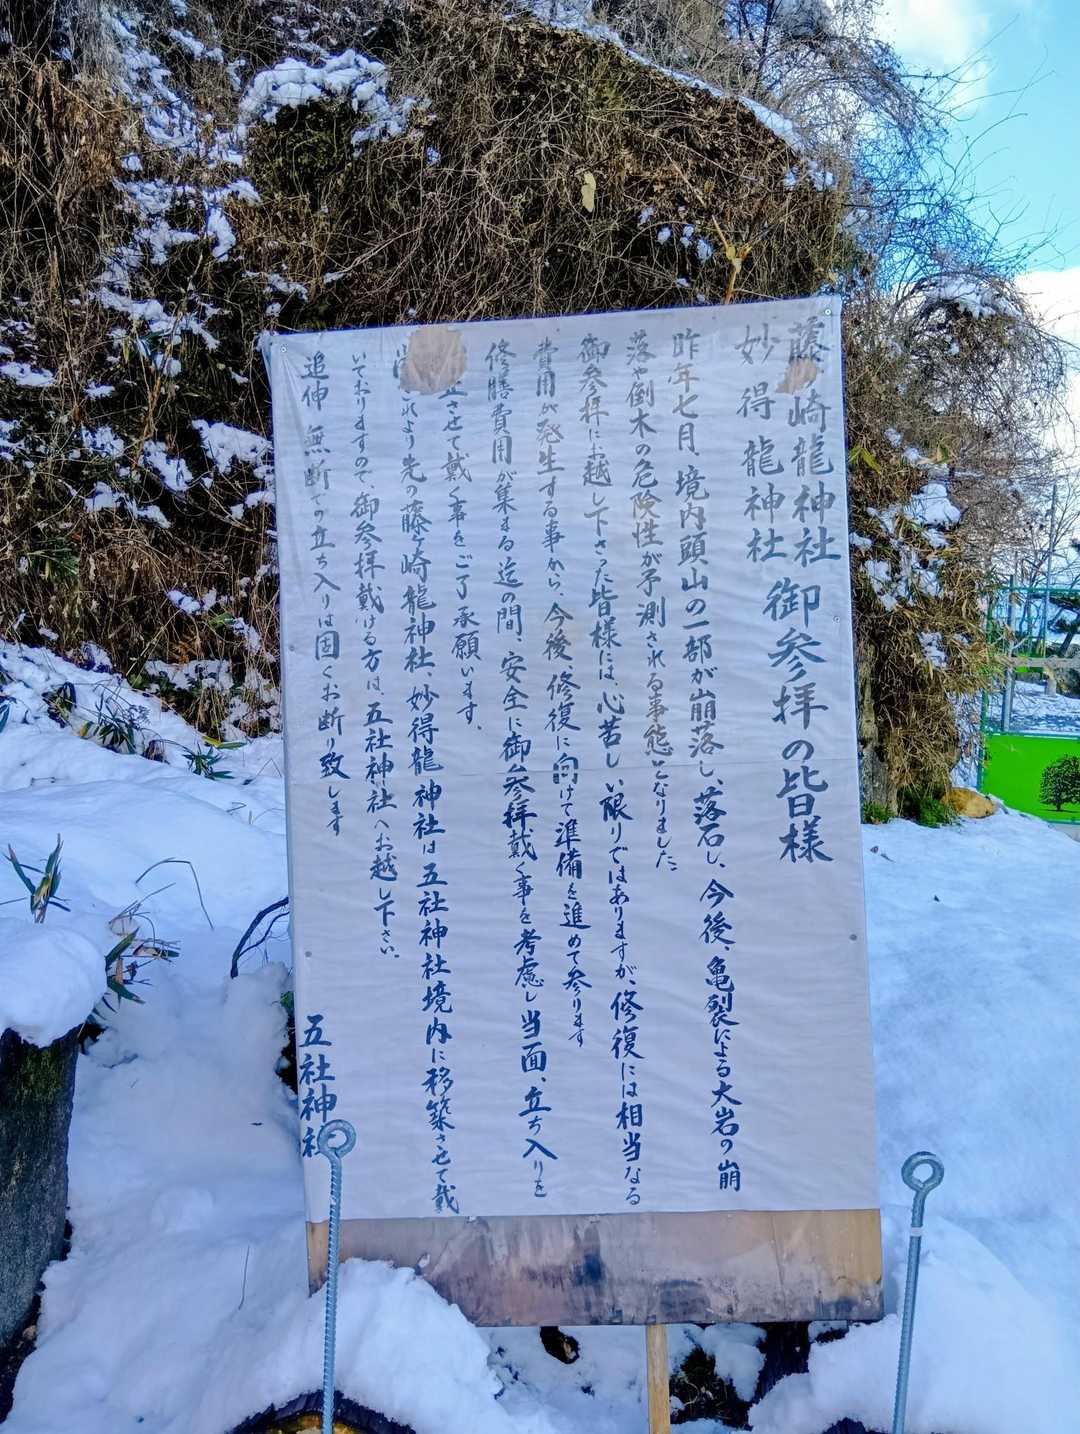 藤ヶ崎龍神社
妙得龍神社 御参拝の皆様
昨年七月、境内頭山の一部が崩落し、落石し、今後、亀裂による大岩の崩
落や倒木の危険性が予測される事態となりました。
御参拝にお越し下さった皆様には、心苦しい限りではありますが、修復には相当なる
費用が発生する事から、今後、修復に向けて準備を進めて参ります
修膳費用が集まる迄の間、安全に御参拝戴く事を考慮し当面、立ち入りを
止させて戴く事をご了承願います。
尚 れより先の藤ヶ崎龍神社、妙得龍神社は五社神社境内に移築させて戴
いておりますので、御参拝戴ける方は、五社神社へお越し下さい。
追伸 無断での立ち入りは固くお断り致します
五社神社